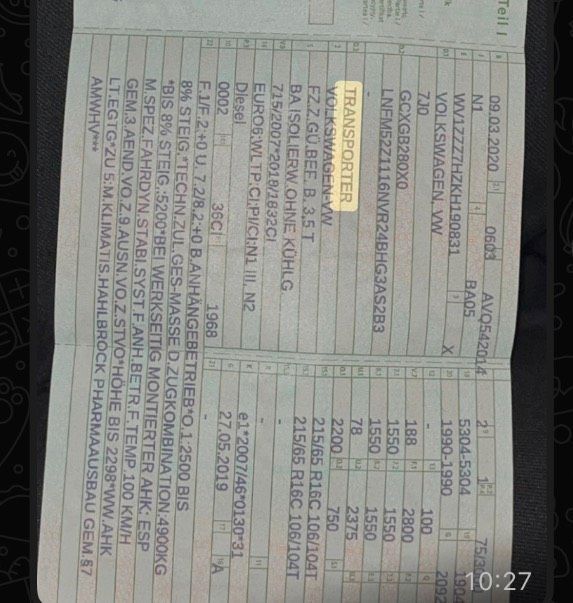 Teil I
09.03.2020 0603 AVQ542014
N1 BA05
WV1ZZZ7HZKH190831 3
VOLKSWAGEN, VW X
7J0
GCXGB280X0
LNFM5Z1116NVR24BHG3AS2B3
-
TRANSPORTER
VOLKSWAGEN-VW
FZ.Z.GÜ.BEF. B. 3,5 T
BA.ISOLIERW.OHNE KÜHLG
715/2007*2018/1832CI
EURO6;WLTP;CI;PI/CI;N1 III, N2
Diesel
0002 36CI 1968
2 1 75/3
5304-5304 1904
1990-1990 2092
- 100
188 2800
1550 1550
1550 1550
78 2375
2200 750
215/65 R16C 106/104T
215/65 R16C 106/104T
-
-
e1*2007/46*0130*31
27.05.2019 A
-
F.1/F.2:+0 U. 7.2/8.2:+0 B.ANHÄNGEBETRIEB*O.1:2500 BIS
8% STEIG.*TECHN.ZUL.GES-MASSE D.ZUGKOMBINATION:4900KG
*BIS 8% STEIG.:5200*BEI WERKSEITIG MONTIERTER AHK: ESP
M.SPEZ.FAHRDYN.STABI.SYST.F.ANH.BETR.F.TEMP.100 KM/H
GEM.3 AEND.VO.Z.9.AUSN.VO.Z.STVO*HÖHE BIS 2298*WW.AHK
LT.EGTG*ZU 5:M.KLIMATIS.HAHLBROCK PHARMAAUSBAU GEM.§7
AMWHV***
10:27